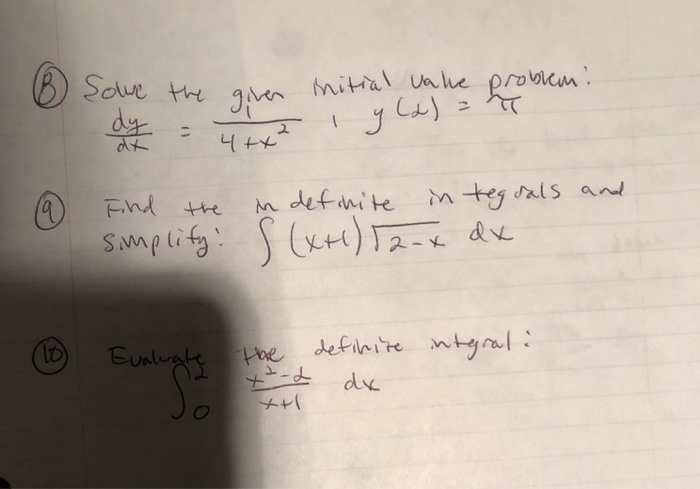 ⑧ Solve the given initial value problem:
dy/dx = 1/(4+x²) , y(2) = π
⑨ Find the indefinite integrals and
simplify: ∫ (x+1)√(2-x) dx
⑩ Evaluate the definite integral:
∫₀² (x²-2)/(x+1) dx